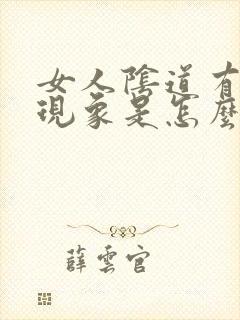 女人陰道有
現象是怎麼
薛雲官